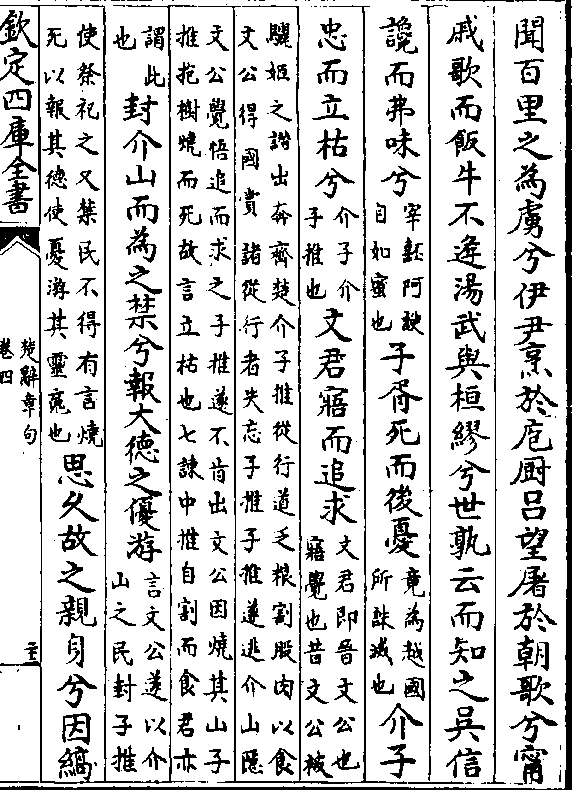 聞百里之為虜兮伊尹烹於庖厨呂望屠於朝歌兮甯
戚歌而飯牛不逢湯武與桓繆兮世孰云而知之吳信
讒而弗味兮宰嚭阿諛自如蜜也子胥死而後憂竟為越國所誅滅也介子
忠而立枯兮介子介子推也文君寤而追求文君即晉文公也寤覺也昔文公被
驪姬之譖出奔齊楚介子推從行道乏糧割股肉以食
文公得國賞諸從行者失忘子推子推遂逃介山隱
文公覺悟追而求之子推遂不肯出文公因燒其山子
推抱樹燒而死故言立枯也七諫中推自割而食君亦
謂此也封介山而為之禁兮報大德之優游言文公遂以介山之民封子推
使祭祀之又禁民不得有言燒
死以報其德使憂游其靈䰟也思久故之親身兮因縞
欽定四庫全書
楚辭章句
卷四